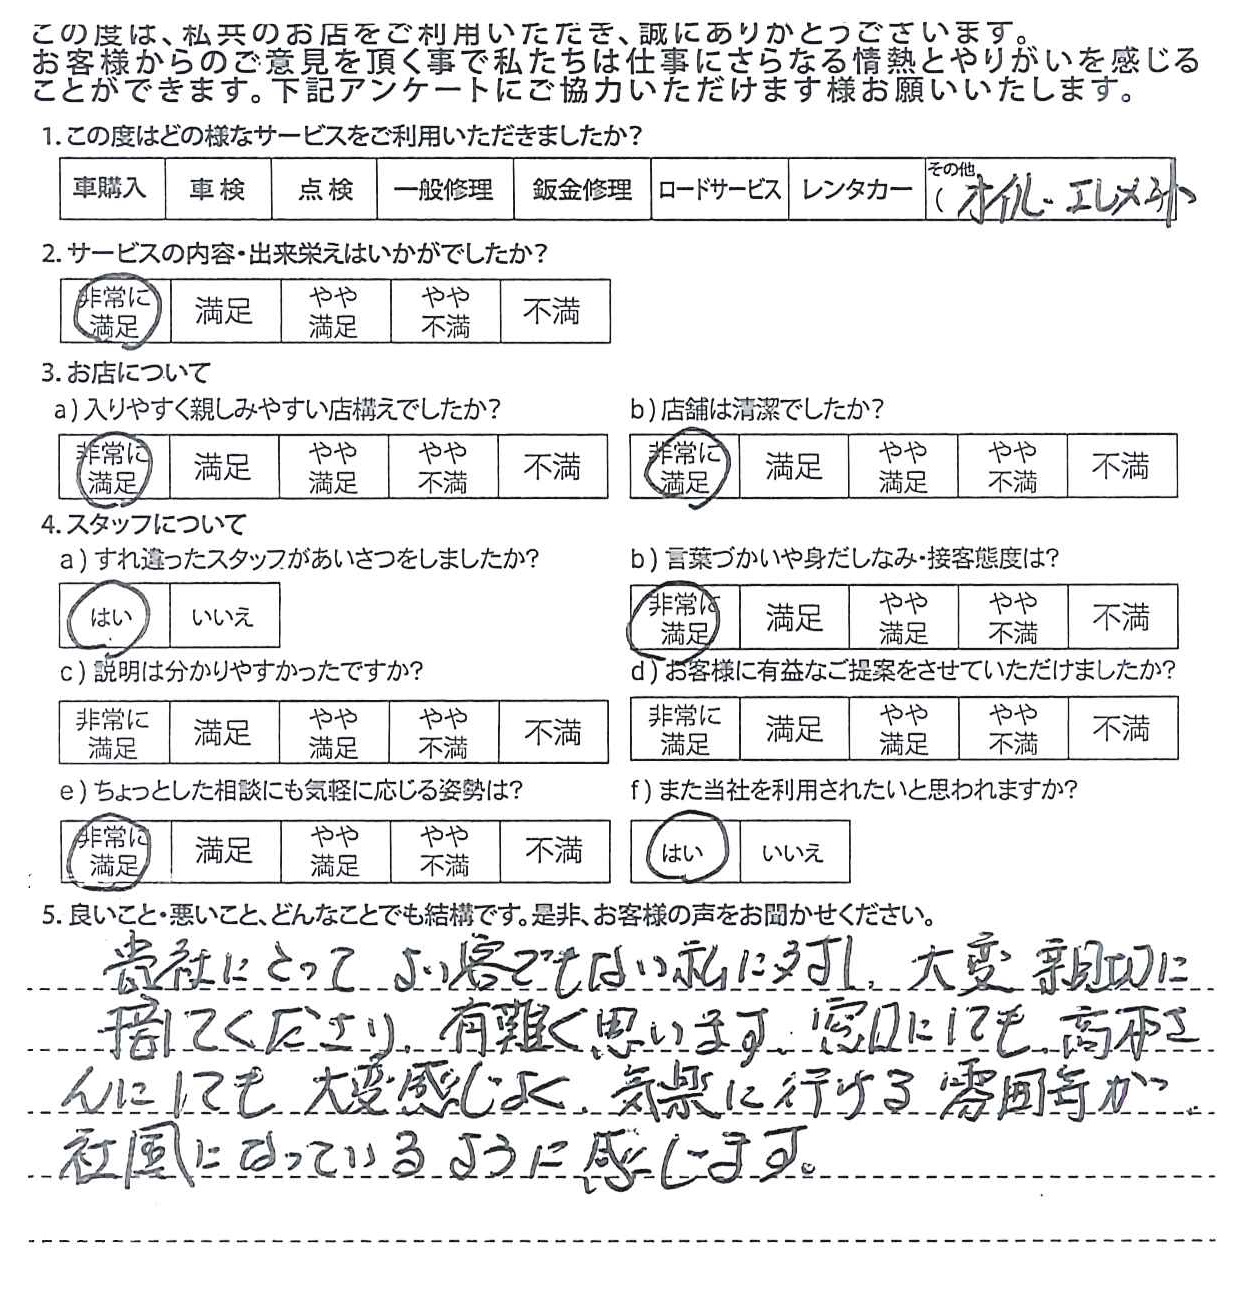 この度は、私共のお店をご利用いただき、誠にありがとうございます。
お客様からのご意見を頂く事で私たちは仕事にさらなる情熱とやりがいを感じる
ことができます。下記アンケートにご協力いただけます様お願いいたします。
1. この度はどの様なサービスをご利用いただきましたか?
車購入 車検 点検 一般修理 鈑金修理 ロードサービス レンタカー その他 ( オイル・エレメント
2. サービスの内容・出来栄えはいかがでしたか?
非常に満足 満足 やや満足 やや不満 不満
3. お店について
a) 入りやすく親しみやすい店構えでしたか? b) 店舗は清潔でしたか?
非常に満足 満足 やや満足 やや不満 不満 非常に満足 満足 やや満足 やや不満 不満
4. スタッフについて
a) すれ違ったスタッフがあいさつをしましたか? b) 言葉づかいや身だしなみ・接客態度は?
はい いいえ 非常に満足 満足 やや満足 やや不満 不満
c) 説明は分かりやすかったですか? d) お客様に有益なご提案をさせていただけましたか?
非常に満足 満足 やや満足 やや不満 不満 非常に満足 満足 やや満足 やや不満 不満
e) ちょっとした相談にも気軽に応じる姿勢は? f) また当社を利用されたいと思われますか?
非常に満足 満足 やや満足 やや不満 不満 はい いいえ
5. 良いこと・悪いこと、どんなことでも結構です。是非、お客様の声をお聞かせください。
貴社にとってよい客でもない私に対し、大変親切に
接してくださり、有難く思います。窓口にしても、高柳さ
んにしても大変感じよく、気楽に行ける雰囲気が
社風になっているように感じます。